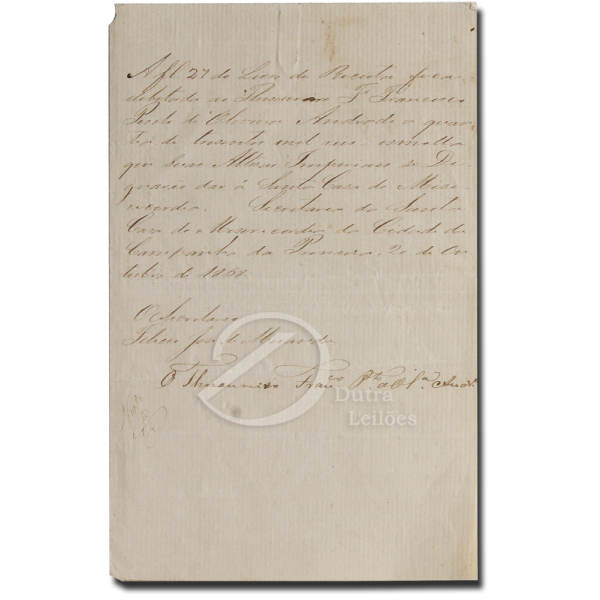 A fl. 27 do Livro da Receita fica
debitado ao Thesoureiro Francisco
de Oliveira Andrade a quan
tia de trezentos mil reis esmolla
que Suas Altezas Imperiaes se Di
gnarão dar á Santa Casa de Mise
ricordia. Secretaria da Santa
Casa de Misericordia da Cidade da
Campanha da Princesa, 20 de Ou
tubro de 1868
O Secretario
José de
O Thesoureiro Franco
Dutra
Leilões